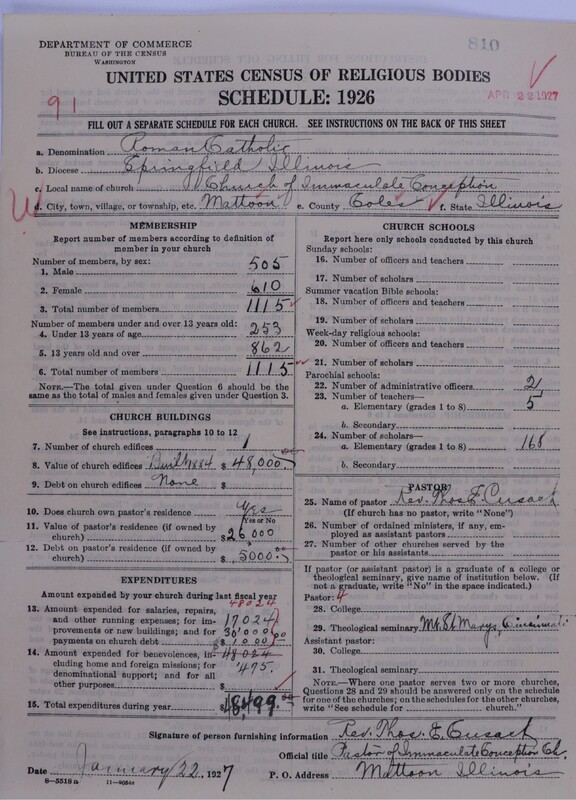 DEPARTMENT OF COMMERCE
BUREAU OF THE CENSUS
WASHINGTON
810
UNITED STATES CENSUS OF RELIGIOUS BODIES
SCHEDULE: 1926
APR 22 1927
91
FILL OUT A SEPARATE SCHEDULE FOR EACH CHURCH. SEE INSTRUCTIONS ON THE BACK OF THIS SHEET
a. Denomination Roman Catholic
b. Diocese Springfield Illinois
c. Local name of church Church of Immaculate Conception
d. City, town, village, or township, etc. Mattoon e. County Coles f. State Illinois
MEMBERSHIP
Report number of members according to definition of member in your church
Number of members, by sex:
1. Male 505
2. Female 610
3. Total number of members 1115
Number of members under and over 13 years old:
4. Under 13 years of age 253
5. 13 years old and over 862
6. Total number of members 1115
NOTE.—The total given under Question 6 should be the same as the total of males and females given under Question 3.
CHURCH BUILDINGS
See instructions, paragraphs 10 to 12
7. Number of church edifices 1
8. Value of church edifices Built 1884 $ 48,000.
9. Debt on church edifices None $
10. Does church own pastor's residence Yes
Yes or No
11. Value of pastor's residence (if owned by church) $ 26000
12. Debt on pastor's residence (if owned by church) $ 5000.00
EXPENDITURES
Amount expended by your church during last fiscal year
48024
13. Amount expended for salaries, repairs, and other running expenses; for improvements or new buildings; and for payments on church debt 17024
30,000.00
$ 1000
14. Amount expended for benevolences, including home and foreign missions; for denominational support; and for all other purposes 48024
475.
$
15. Total expenditures during year $ 48,499.00
CHURCH SCHOOLS
Report here only schools conducted by this church
Sunday schools:
16. Number of officers and teachers
17. Number of scholars
Summer vacation Bible schools:
18. Number of officers and teachers
19. Number of scholars
Week-day religious schools:
20. Number of officers and teachers
21. Number of scholars
Parochial schools:
22. Number of administrative officers 2
23. Number of teachers—
a. Elementary (grades 1 to 8) 5
b. Secondary
24. Number of scholars—
a. Elementary (grades 1 to 8) 168
b. Secondary
PASTOR
25. Name of pastor Rev. Thos. E. Cusack
(If church has no pastor, write "None")
26. Number of ordained ministers, if any, employed as assistant pastors
27. Number of other churches served by the pastor or his assistants
If pastor (or assistant pastor) is a graduate of a college or theological seminary, give name of institution below. (If not a graduate, write "No" in the space indicated.)
Pastor: 4
28. College
29. Theological seminary Mt. St. Marys, Cincinnati
Assistant pastor:
30. College
31. Theological seminary
NOTE.—Where one pastor serves two or more churches, Questions 28 and 29 should be answered only on the schedule for one of the churches; on the schedules for the other churches, write "See schedule for church."
Signature of person furnishing information Rev. Thos. E. Cusack
Official title Pastor of Immaculate Conception Ch.
Date January 22, 1927 P. O. Address Mattoon Illinois
8—5518 a